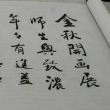 金秋開画展
師生興致濃
年年有進益